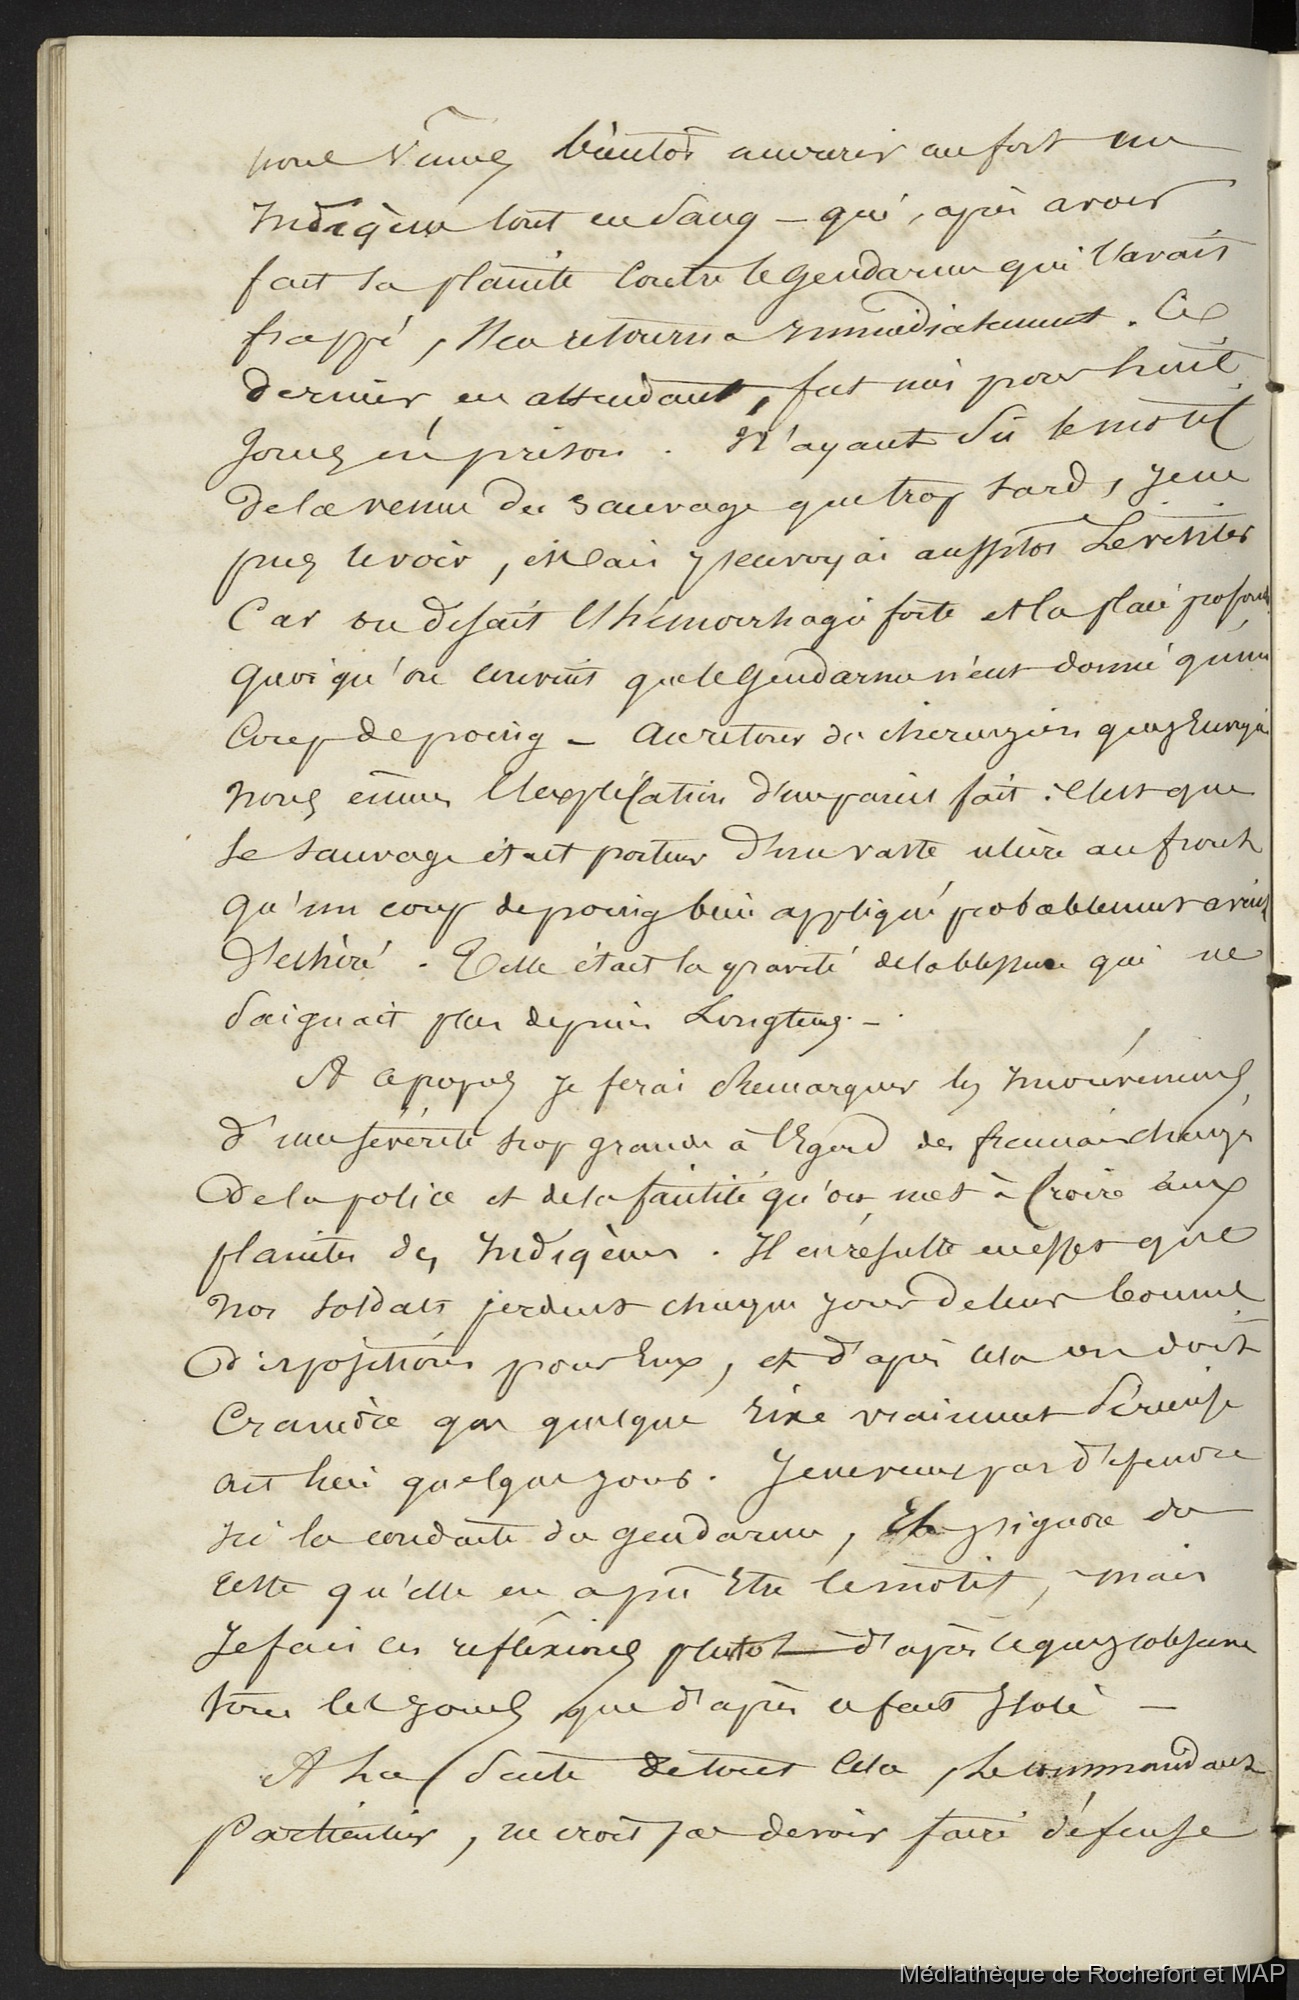 nous vîmes bientôt accourir au fort un
Indigène tout en sang – qui, après avoir
fait sa plainte contre le gendarme qui l'avait
frappé, s'en retourna immédiatement. Ce
dernier en attendant, fut mis pour huit
Jours en prison. N'ayant su le motif
de la venue du sauvage que trop tard, je ne
pus le voir, mais j'envoyai aussitôt le visiter
Car on disait l'hémorrhagie forte et la plaie profonde
Quoiqu'on convint que le Gendarme n'eut donné qu'un
Coup de poing – Au retour du chirurgien que j'envoyai
nous eûmes l'explication d'un pareil fait : c'est que
le sauvage était porteur d'un vaste ulcère au front
qu'un coup de poing bien appliqué probablement avait
déchiré. Telle était la gravité de la blessure qui ne
saignait plus depuis Longtems. –
A ce propos je ferai Remarquer les Inconvéniens
d'une sévérité trop grande à l'Egard des français chargés
de la police et de la facilité qu'on met à Croire aux
plaintes des Indigènes. Il en résulte en effet que
nos soldats perdent chaque jour de leurs bonnes
dispositions pour Eux, et d'après cela on doit
Craindre que quelque Rixe vraiment sérieuse
ait lieu quelque jour. Je ne veux pas défendre
ici la conduite du gendarme, Et j'ignore de
reste qu'elle en a pu Etre le motif, mais
Je fais ces réflexions plutot d'après ce que j'observe
tous les Jours que d'après un fait Isolé –
A La suite de tout Cela, Le commandant
Particulier, ne croit pas devoir faire défense
Médiathèque de Rochefort et MAP